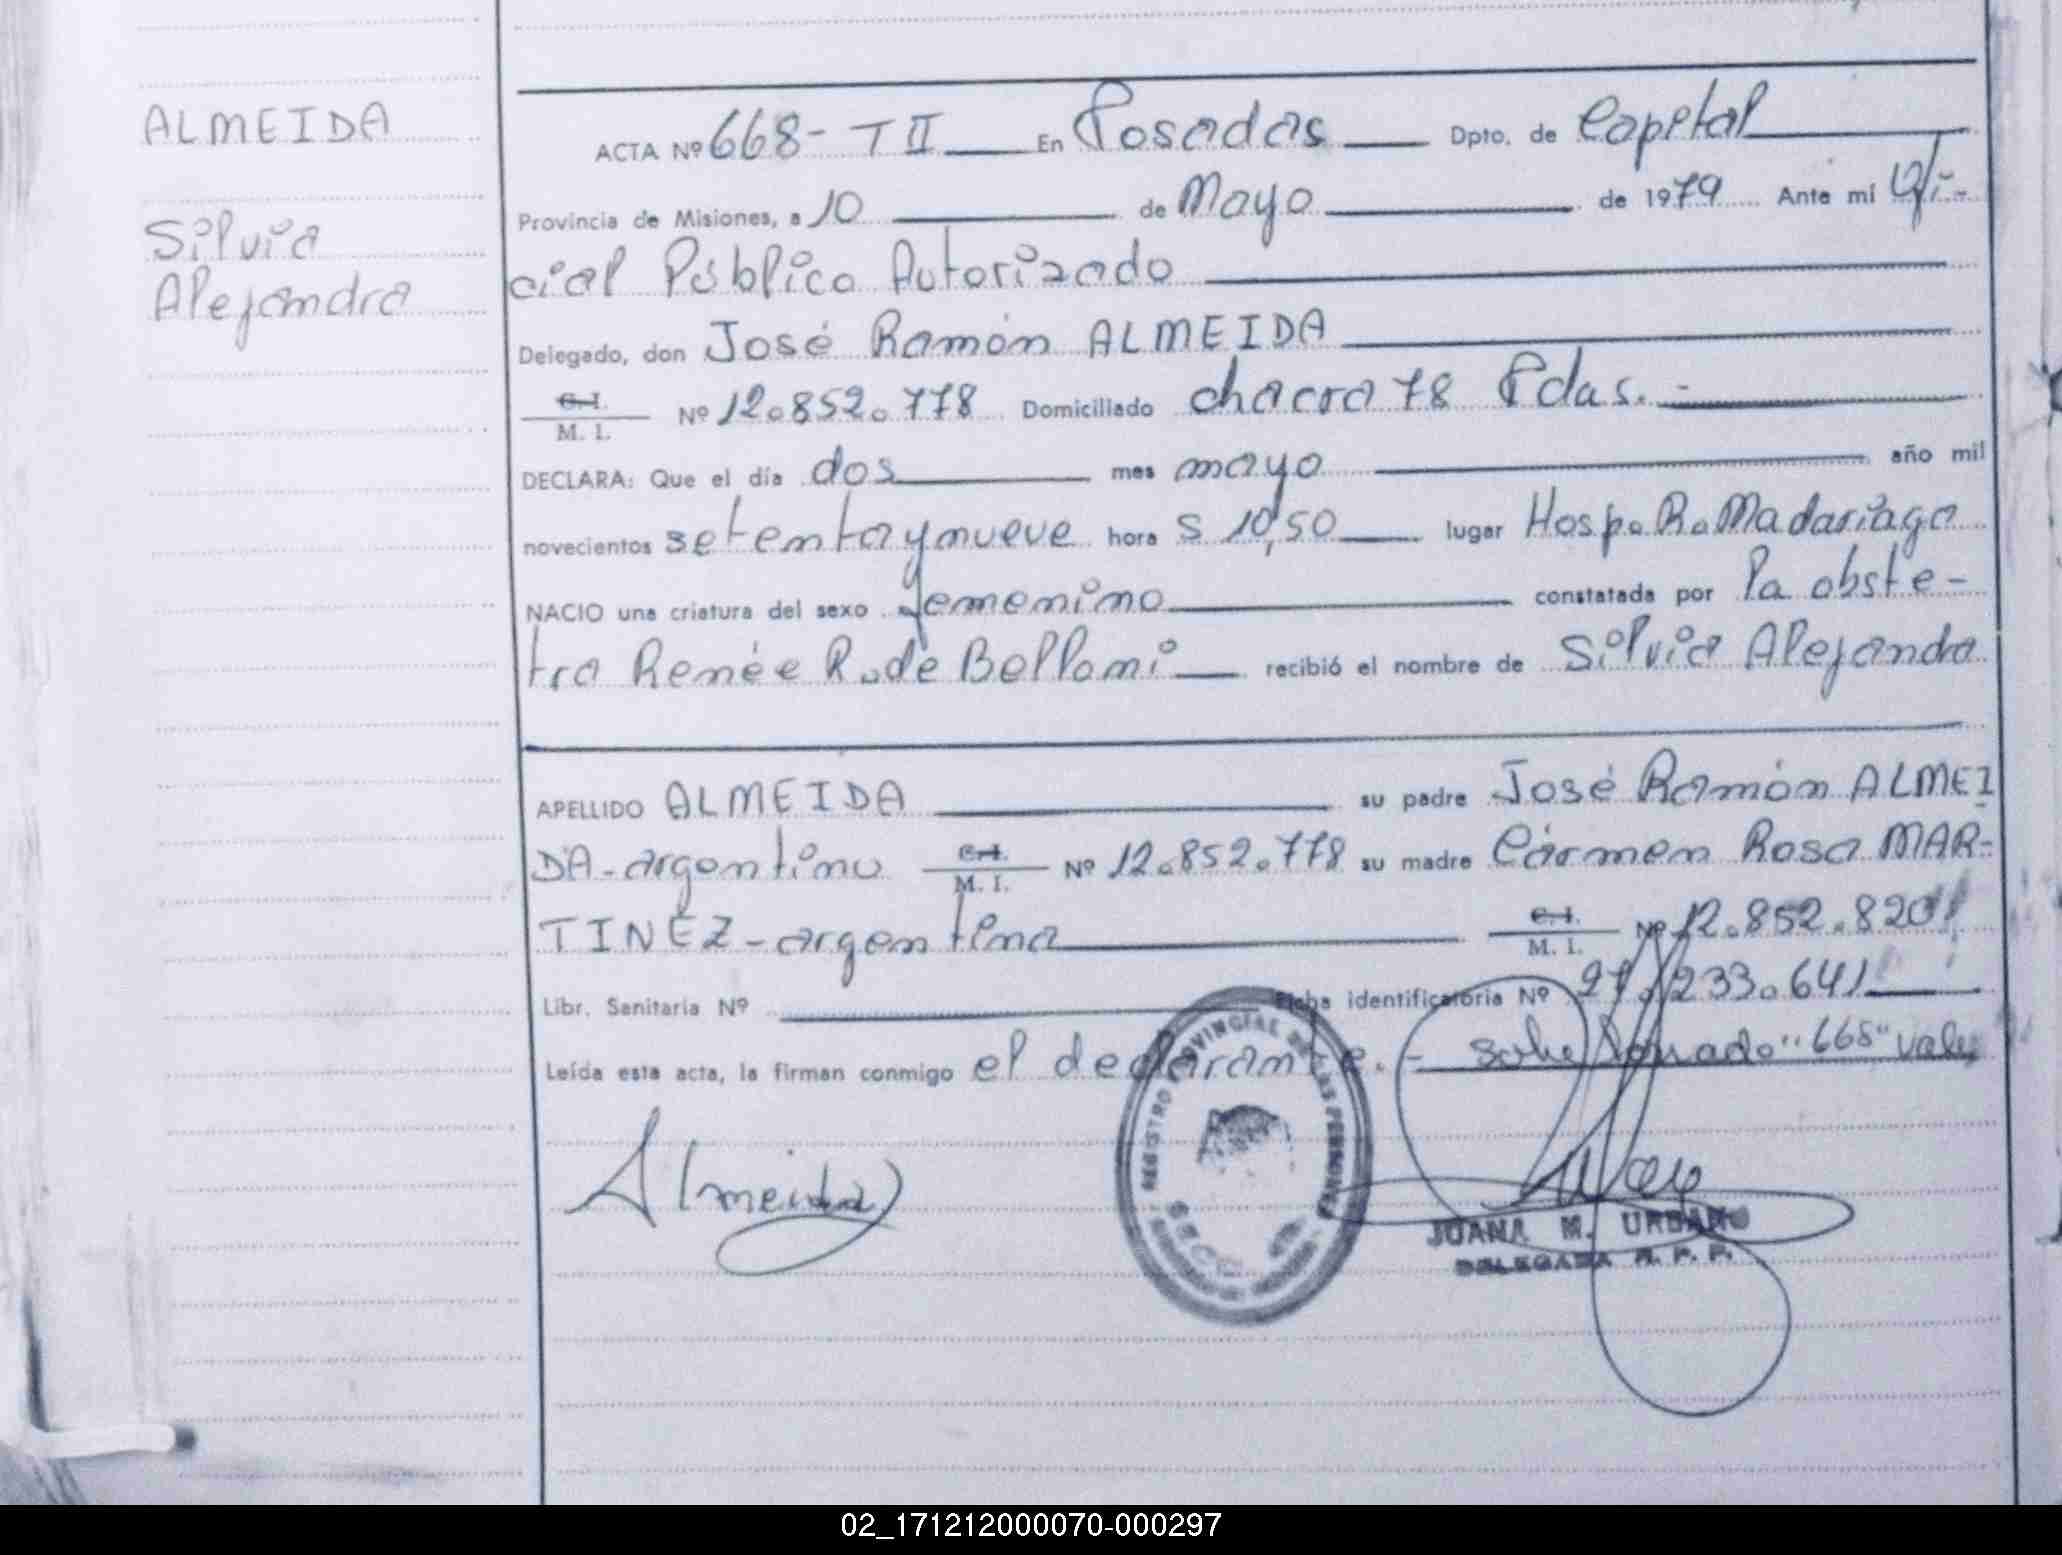 ALMEIDA
Silvia
Alejandra
ACTA Nº 668- T II En Posadas Dpto. de Capital
Provincia de Misiones, a 10 de Mayo de 1979 Ante mi Ofi-
cial Público Autorizado
Delegado, don José Ramón ALMEIDA
C. I.
M. I. Nº 12.852.778 Domiciliado chacra 78 Pdas.-
DECLARA: Que el día dos mes mayo año mil
novecientos setenta y nueve hora s 10,50 lugar Hosp. R. Madariaga
NACIO una criatura del sexo femenino constatada por la obste-
tra Renée R. de Bellomi recibió el nombre de Silvia Alejandra
APELLIDO ALMEIDA su padre José Ramón ALMEI
DA-argentino C. I. M. I. Nº 12.852.778 su madre Cármen Rosa MAR-
TINEZ-argentina C. I. M. I. Nº 12.852.820
Libr. Sanitaria Nº Ficha identificatoria Nº 27.233.641
Leída esta acta, la firman conmigo el declarante.- sobre borrado "668" vale
Almeida
REGISTRO PROVINCIAL DE LAS PERSONAS
JUANA M. URBANO
DELEGADA R. P. P.
02_171212000070-000297